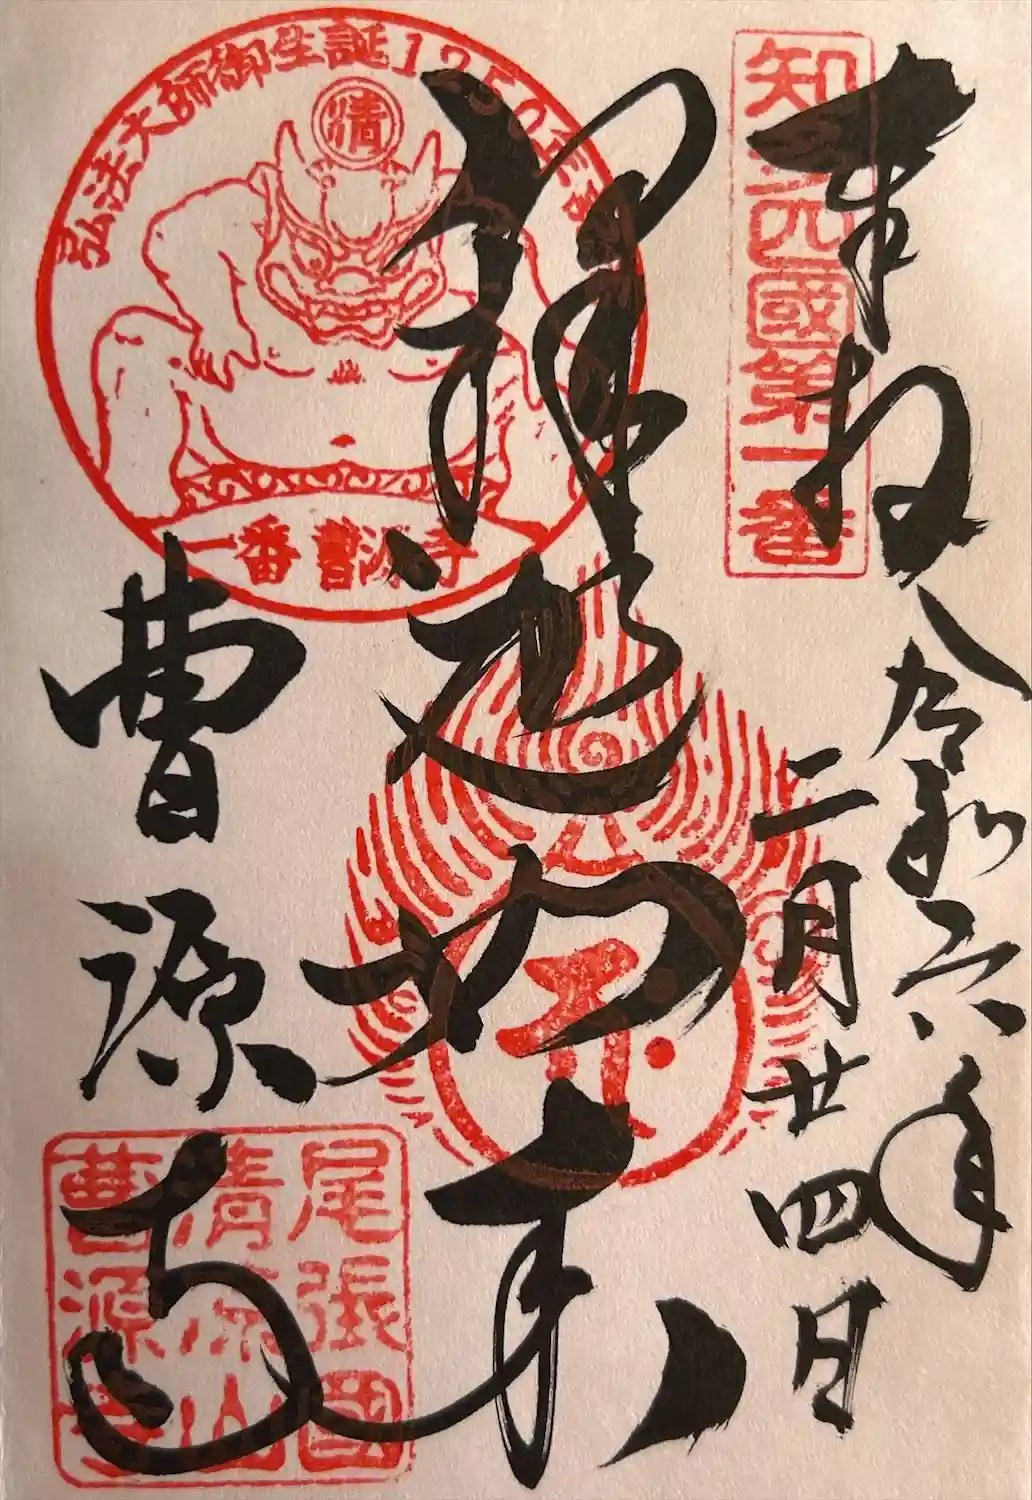 知多四國第一番
奉拝
令和六年
二月廿四日
釋迦如来
弘法大師御生誕1250年記
清
一番 曹源寺
曹源寺
尾張國
清涼山
曹源寺